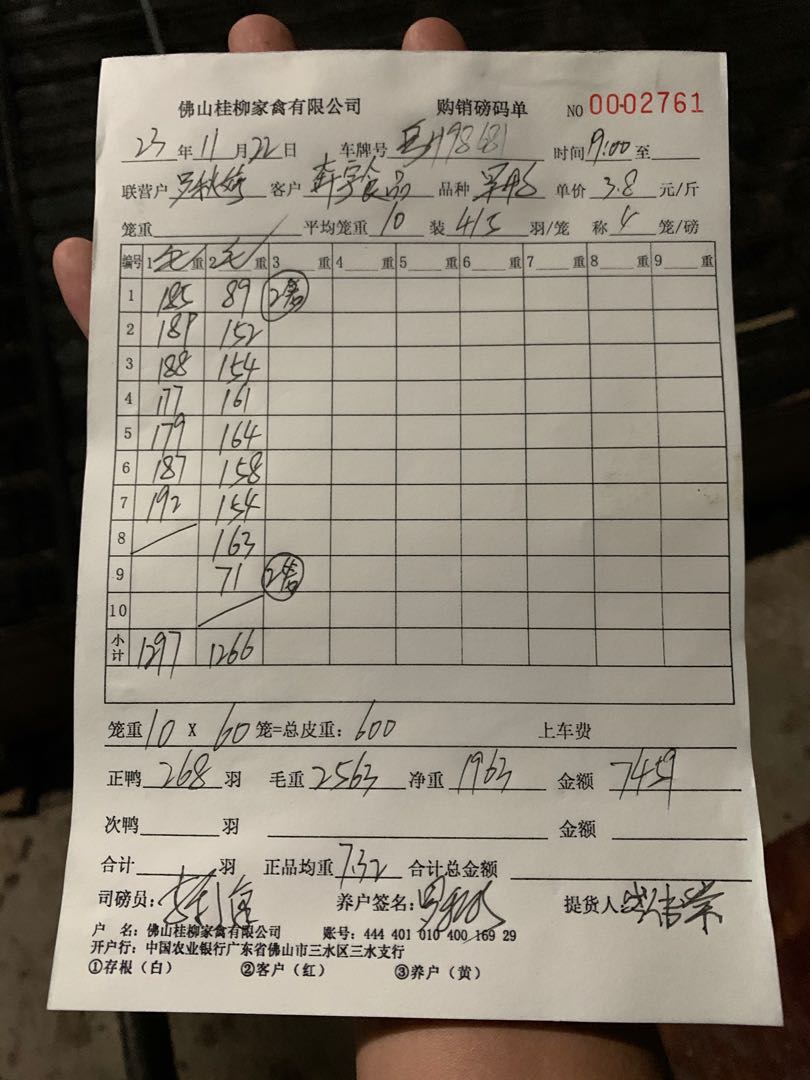 佛山桂柳家禽有限公司 购销磅码单 NO 00-02761
23 年 11 月 22 日 车牌号 时间 9:00 至
联营户 客户 食品 品种 单价 3.8 元/斤
笼重 平均笼重 10 装 4/5 羽/笼 称 4 笼/磅
编号 1 毛 重 2 毛 重 3 重 4 重 5 重 6 重 7 重 8 重 9 重
1 185 89
2 189 152
3 188 154
4 177 161
5 179 164
6 187 158
7 192 154
8 163
9 71
10
小计 1297 1266
笼重 10 X 60 笼=总皮重: 600 上车费
正鸭 268 羽 毛重 2563 净重 1963 金额 7459
次鸭 羽 金额
合计 羽 正品均重 7.32 合计总金额
司磅员: 养户签名: 提货人
户 名: 佛山桂柳家禽有限公司 账号: 444 401 010 400 169 29
开户行: 中国农业银行广东省佛山市三水区三水支行
①存根(白) ②客户(红) ③养户(黄)